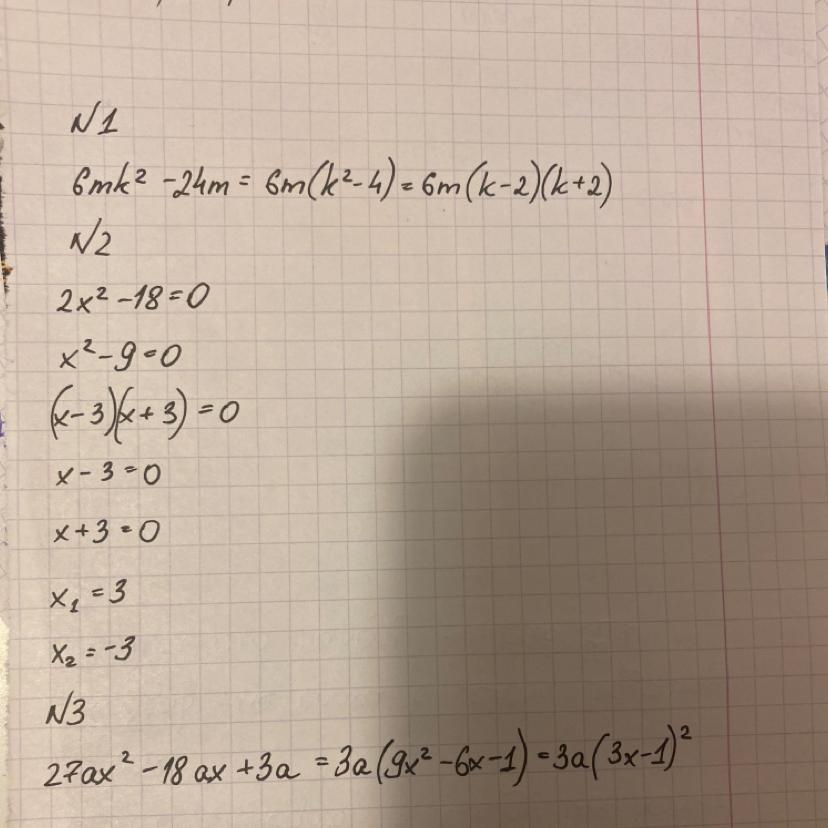 N1
6mk² - 24m = 6m(k² - 4) = 6m(k-2)(k+2)
N2
2x² - 18 = 0
x² - 9 = 0
(x - 3)(x + 3) = 0
x - 3 = 0
x + 3 = 0
x₁ = 3
x₂ = -3
N3
27ax² - 18ax + 3a = 3a(9x² - 6x - 1) = 3a(3x-1)²